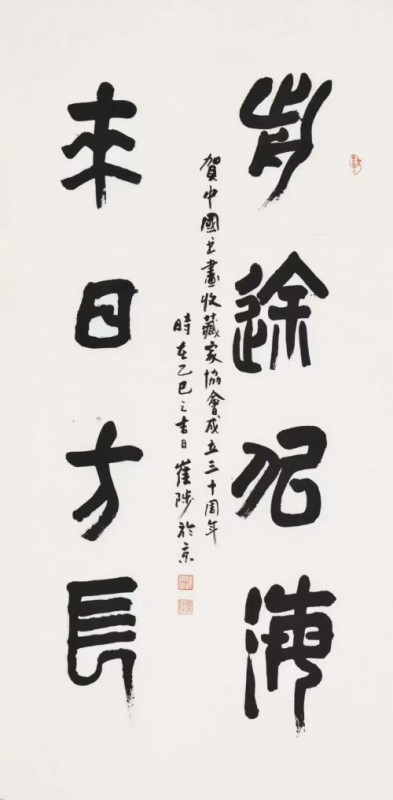 前途似海
来日方長
賀中國書畫收藏家協會成立三十周年
時在乙巳之吉日 崔陟於京